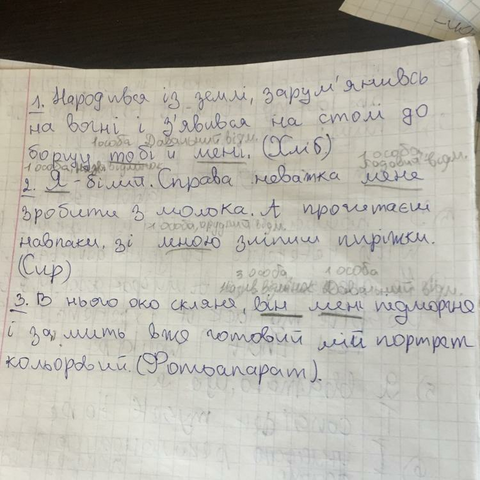 1. Народився із землі, зарум'янивсь
на вогні і з'явився на столі до
1 особа Давальний відм.
борщу тобі й мені. (Хліб)
1 особа
Родовий відм.
1 особа
2. Я - білий. Справа неважка мене
зробити з молока. А прочитаєш
1 особа, орудний відм.
навпаки, зі мною зліпиш пиріжки.
(Сир)
3 особа 1 особа
Назив відмінок Давальний відм.
3. В нього око скляне, він мені підморгне
і за мить вже готовий мій портрет
кольоровий. (Фотоапарат).